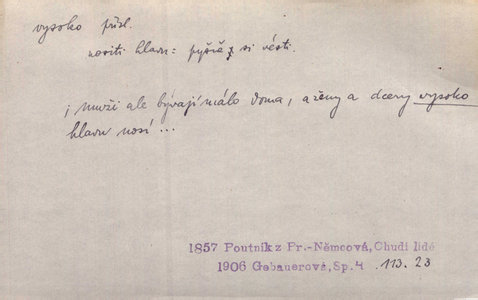 vysoko přísl.
nositi hlavu: pyšně si vésti.
; muži ale bývají málo doma, a ženy a dcery vysoko
hlavu nosí ...
1857 Poutník z Pr.-Němcová, Chudí lidé
1906 Gebauerová, Sp. 4 113. 23